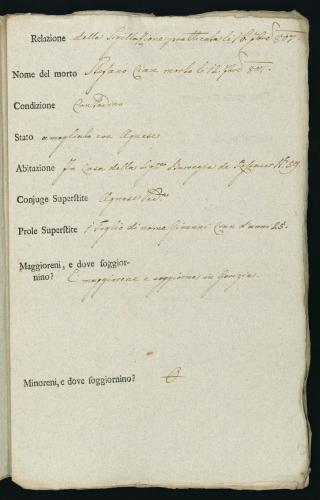 Relazione della Sigillazione pratticata li 16 Febr. 807.
Nome del morto Stefano Cian morto li 12 Febr. 807.
Condizione Contadino
Stato amogliato con Agnese
Abitazione In Casa della Sig.ra Baronessa de N. 59.
Conjuge Superstite Agnese
Prole Superstite 1 Figlio di nome Giovanni Cian d'anni 25.
Maggioreni, e dove soggior-
nino? È maggiorene e soggiorna in Gorizia.
Minoreni, e dove soggiornino?